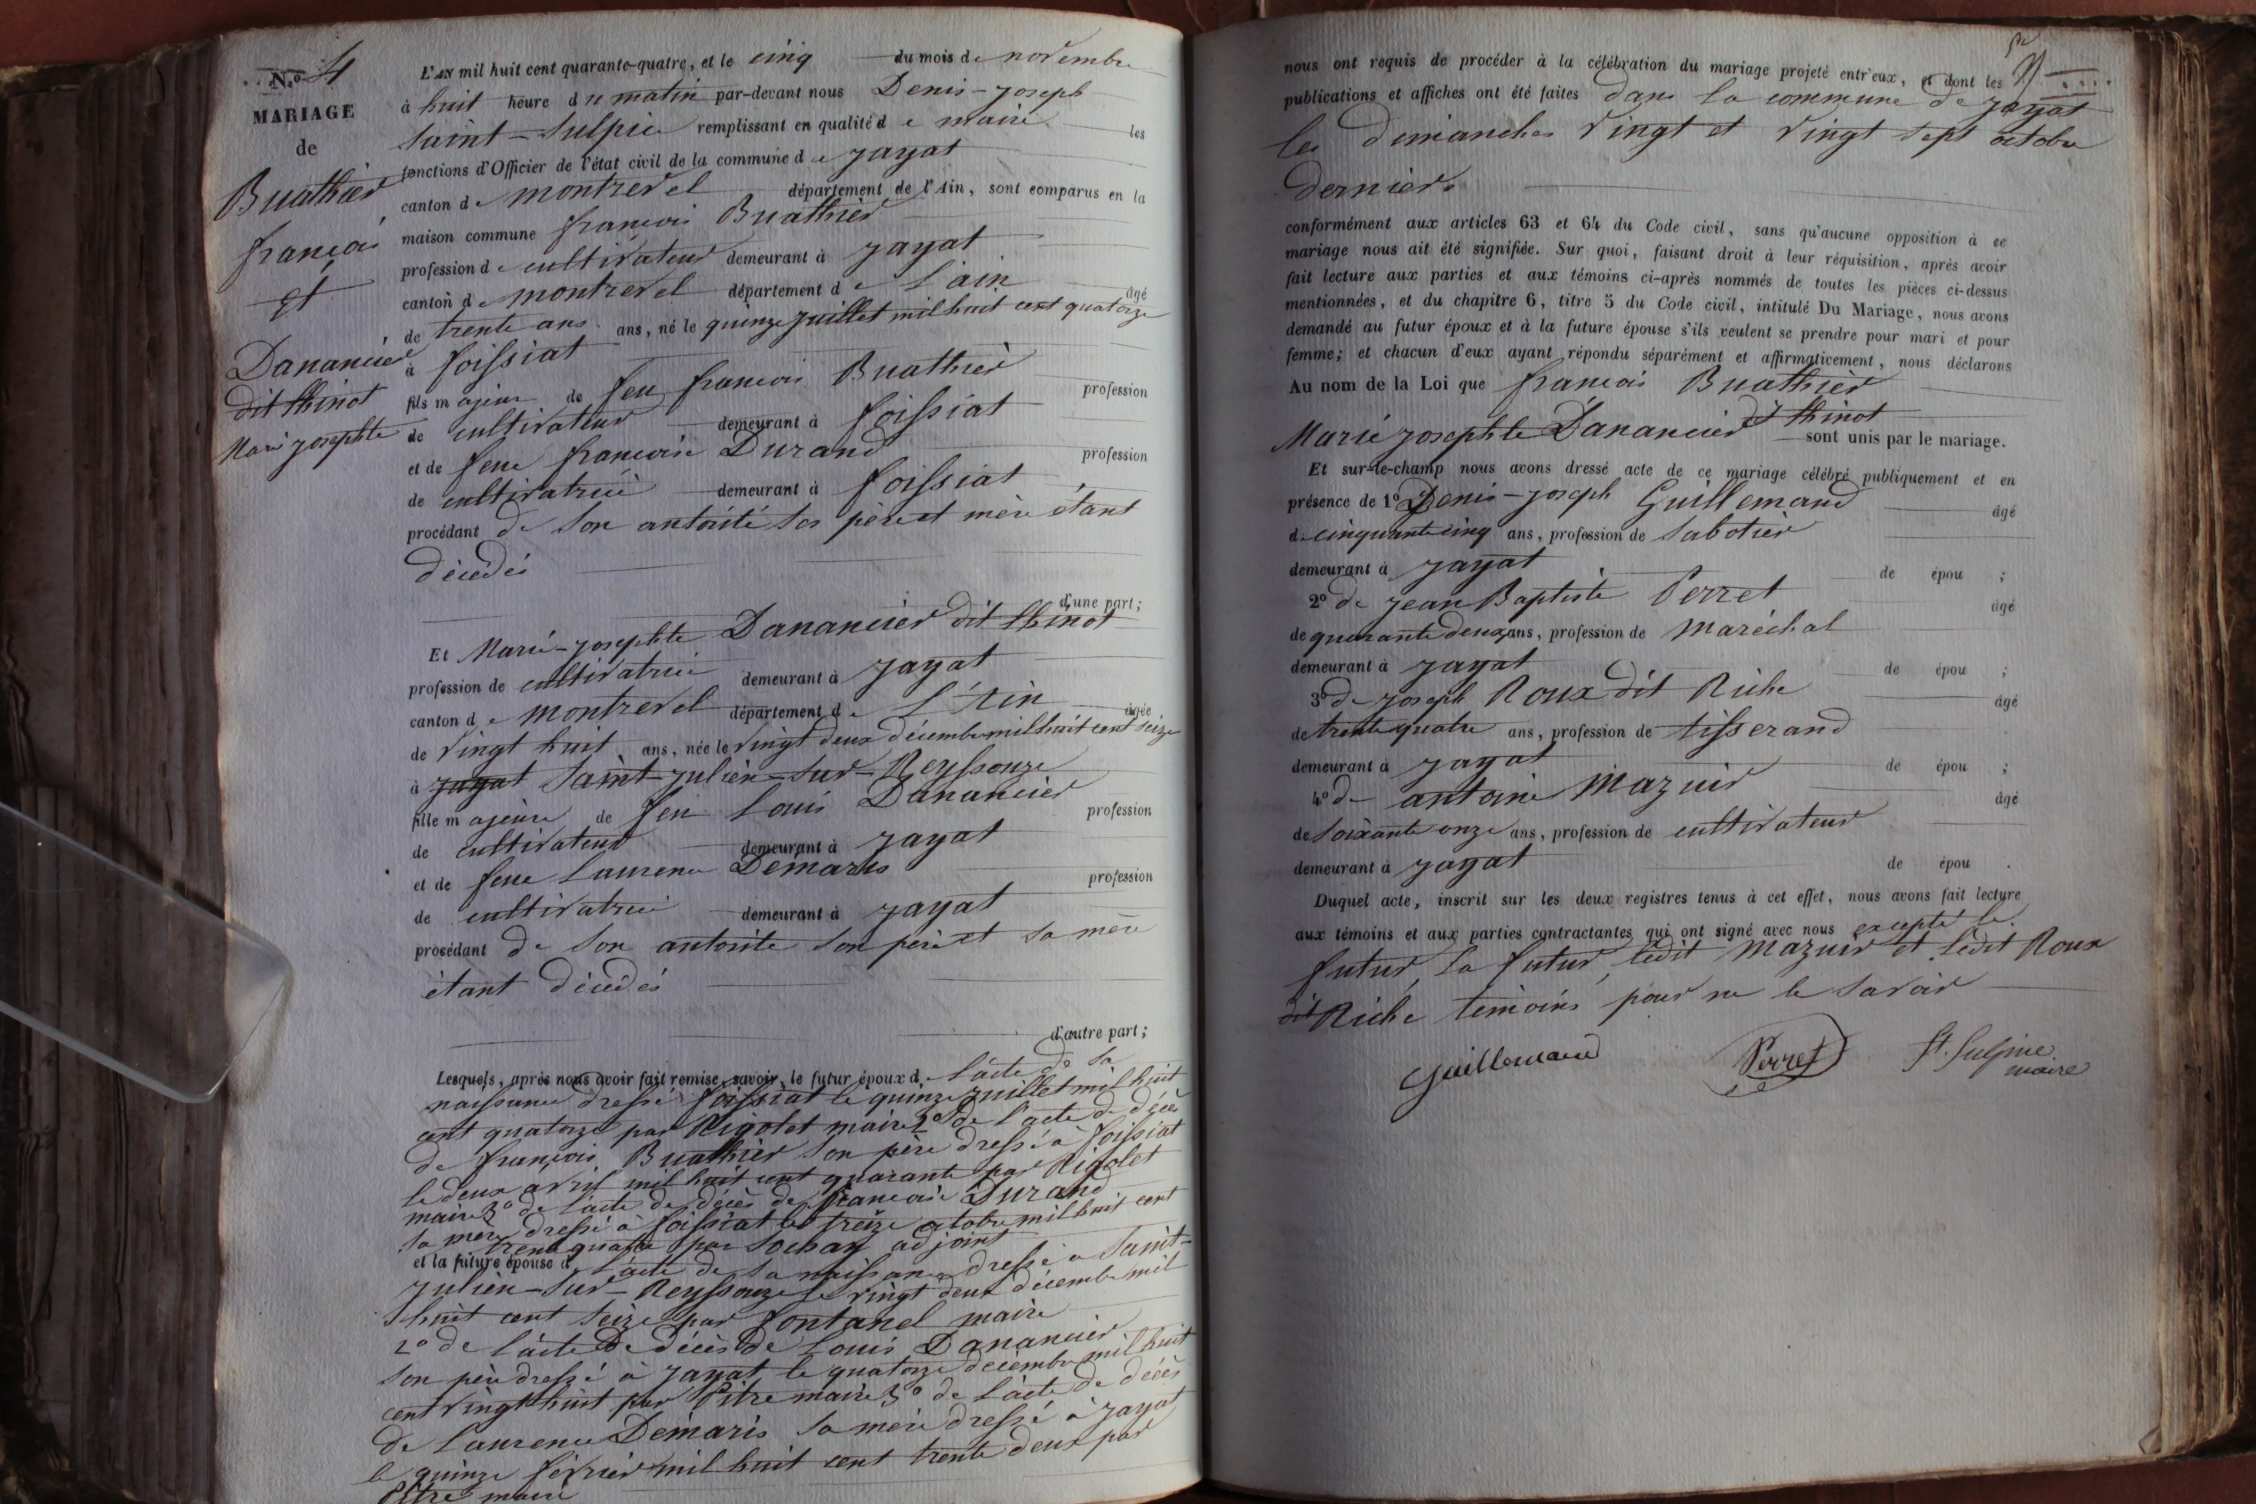 N.º 4
MARIAGE
de
Buathier
françois
et
Danancier
dit thinot
Marie josephte
L'AN mil huit cent quarante-quatre, et le cinq du mois de novembre
à huit heure du matin par-devant nous Denis-joseph
Saint-Sulpice remplissant en qualité de maire les
fonctions d'Officier de l'état civil de la commune de jayat
canton de montrevel département de l'Ain, sont comparus en la
maison commune françois Buathier
profession de cultivateur demeurant à jayat
canton de montrevel département de L'ain âgé
de trente ans ans, né le quinze juillet mil huit cent quatorze
à foissiat
fils majeur de feu françois Buathier profession
de cultivateur demeurant à foissiat
et de feue françoise Durand profession
de cultivatrice demeurant à foissiat
procédant de son autorité ses père et mère étant
décédés
d'une part;
Et Marie-josephte Danancier dit thinot
profession de cultivatrice demeurant à jayat
canton de montrevel département de L'Ain âgée
de vingt huit ans, née le vingt deux décembre mil huit cent seize
à jayat Saint-julien-sur-Reyssouze
fille majeure de feu Louis Danancier profession
de cultivateur demeurant à jayat
et de feue Laurence Démaris profession
de cultivatrice demeurant à jayat
procédant de son autorité son père et sa mère
étant décédés
d'autre part;
Lesquels, après nous avoir fait remise, savoir, le futur époux de L'acte de sa
naissance dressé foissiat le quinze juillet mil huit
cent quatorze par Rigolet maire 2º de l'acte de décès
de françois Buathier son père dressé à foissiat
le deux avril mil huit cent quarante par Rigolet
maire 3º de l'acte de décès de françoise Durand
sa mère dressé à foissiat le treize octobre mil huit cent
trente quatre par Sochay adjoint
et la future épouse d L'acte de sa naissance dressé à Saint-
julien-sur-Reyssouze le vingt deux décembre mil
huit cent seize par fontanel maire
2º de L'acte de décès de Louis Danancier
son père dressé à jayat le quatorze décembre mil huit
cent vingt huit par Pitre maire 3º de L'acte de décès
de Laurence Démaris sa mère dressé à jayat
le quinze février mil huit cent trente deux par
Pitre maire
nous ont requis de procéder à la célébration du mariage projeté entr'eux, et dont les
publications et affiches ont été faites dans la commune de jayat
les dimanches vingt et vingt sept octobre
derniers
conformément aux articles 63 et 64 du Code civil, sans qu'aucune opposition à ce
mariage nous ait été signifiée. Sur quoi, faisant droit à leur réquisition, après avoir
fait lecture aux parties et aux témoins ci-après nommés de toutes les pièces ci-dessus
mentionnées, et du chapitre 6, titre 5 du Code civil, intitulé Du Mariage, nous avons
demandé au futur époux et à la future épouse s'ils veulent se prendre pour mari et pour
femme; et chacun d'eux ayant répondu séparément et affirmativement, nous déclarons
Au nom de la Loi que françois Buathier
Marie josephte Danancier dit thinot sont unis par le mariage.
Et sur-le-champ nous avons dressé acte de ce mariage célébré publiquement et en
présence de 1º Denis-joseph Guillemaud âgé
de cinquante cinq ans, profession de sabotier
demeurant à jayat de épou ;
2º de jean Baptiste Perret âgé
de quarante deux ans, profession de maréchal
demeurant à jayat de épou ;
3º de joseph Roux dit Riche âgé
de trente quatre ans, profession de tisserand
demeurant à jayat de épou ;
4º de antoine Mazuir âgé
de soixante onze ans, profession de cultivateur
demeurant à jayat de épou .
Duquel acte, inscrit sur les deux registres tenus à cet effet, nous avons fait lecture
aux témoins et aux parties contractantes qui ont signé avec nous excepté le
futur, la future, ledit Mazuir et ledit Roux
dit Riche témoins pour ne le savoir
Guillemaud Perret St. Sulpice
maire